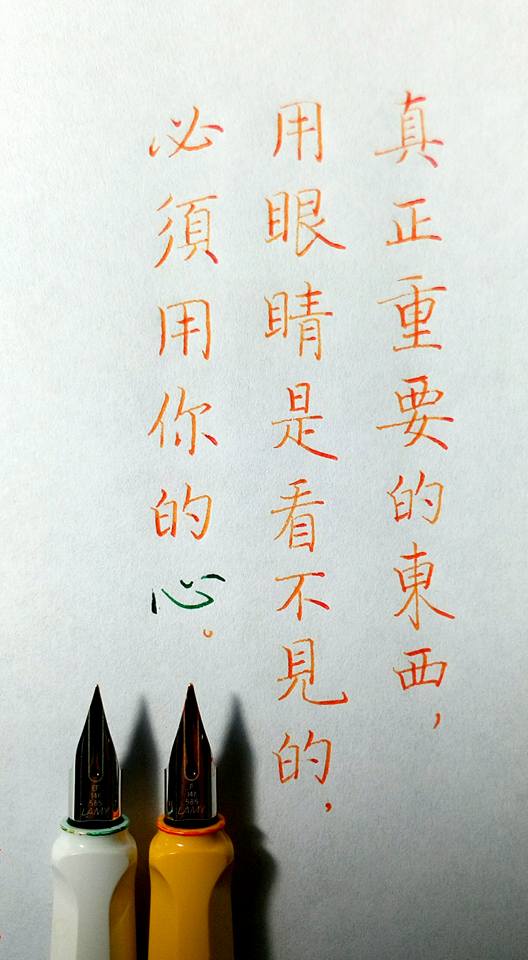 真正重要的東西，
用眼睛是看不見的，
必須用你的心。
EF
14K
585
LAMY
F
14K
585
LAMY